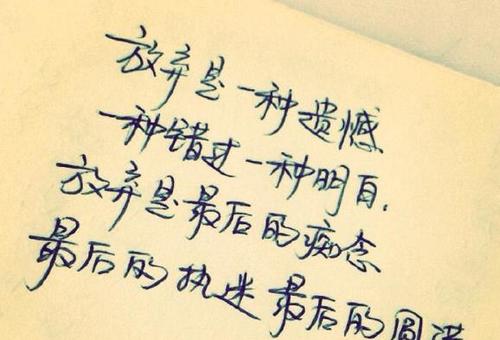 放弃是一种遗憾
一种错过一种明白.
放弃是最后的痴念
最后的执迷最后的圆满